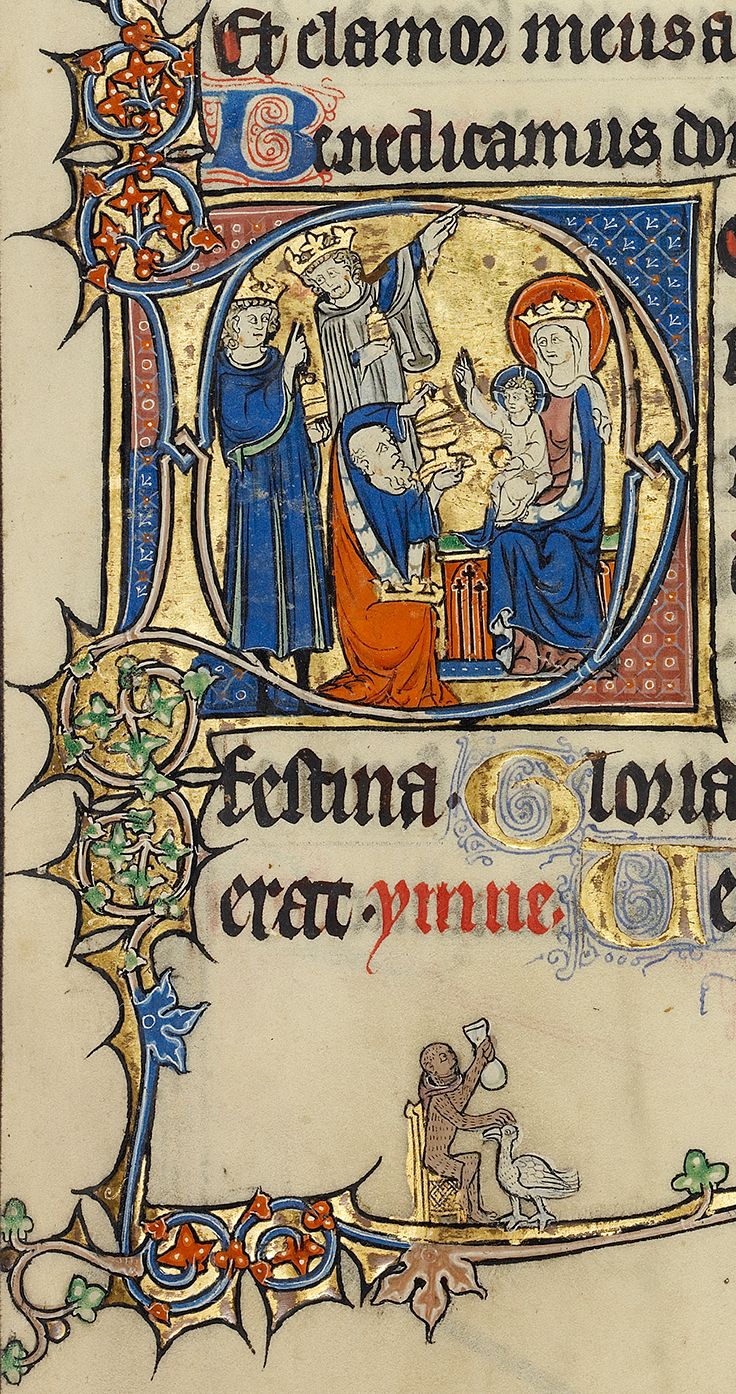 Et clamor meus a
Benedicamus do
D
festina. Gloria
erat. ymne. Ue